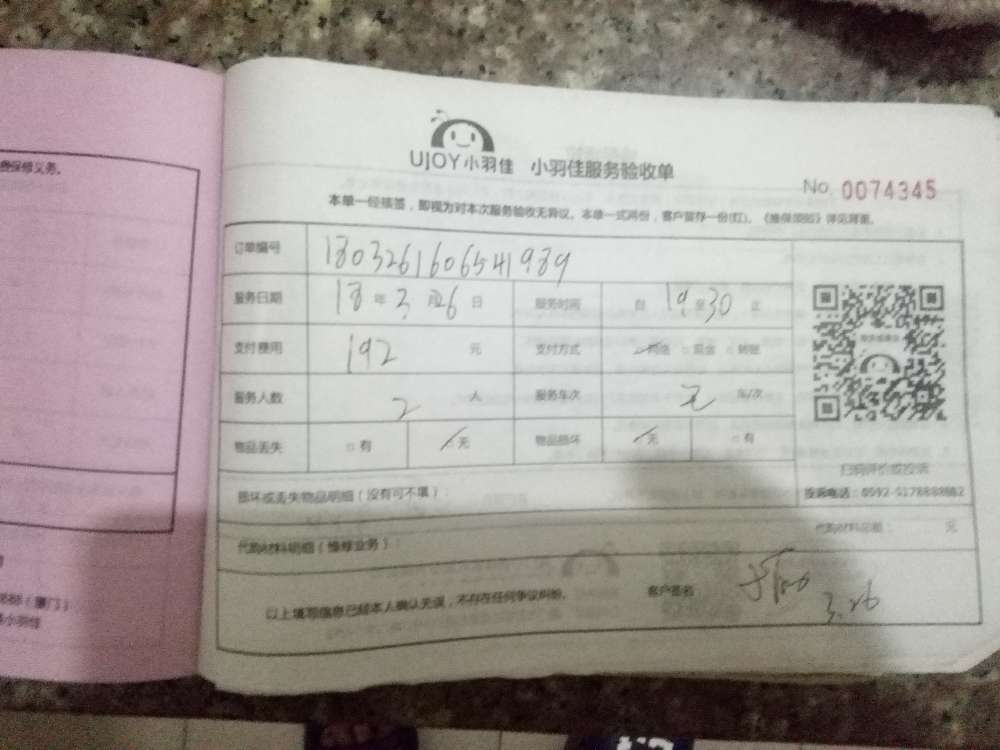 UJOY小羽佳 小羽佳服务验收单
No. 0074345
本单一经接签，即视为对本次服务验收无异议。本单一式两份，客户留存一份(红)。《维保须知》详见背面。
订单编号 1803261606541989
服务日期 18 年 3 月 26 日 服务时间 自 19 至 30 止
支付费用 192 元 支付方式 网络 现金 转账
服务人数 2 人 服务车次 无 车/次
物品丢失 有 无 物品损坏 无 有
扫码评价或投诉
损坏或丢失物品明细（没有可不填）：
代购材料明细（维修业务）： 代购材料总额： 元
以上填写信息已经本人确认无误，不存在任何争议纠纷。 客户签名
3.26
小羽佳